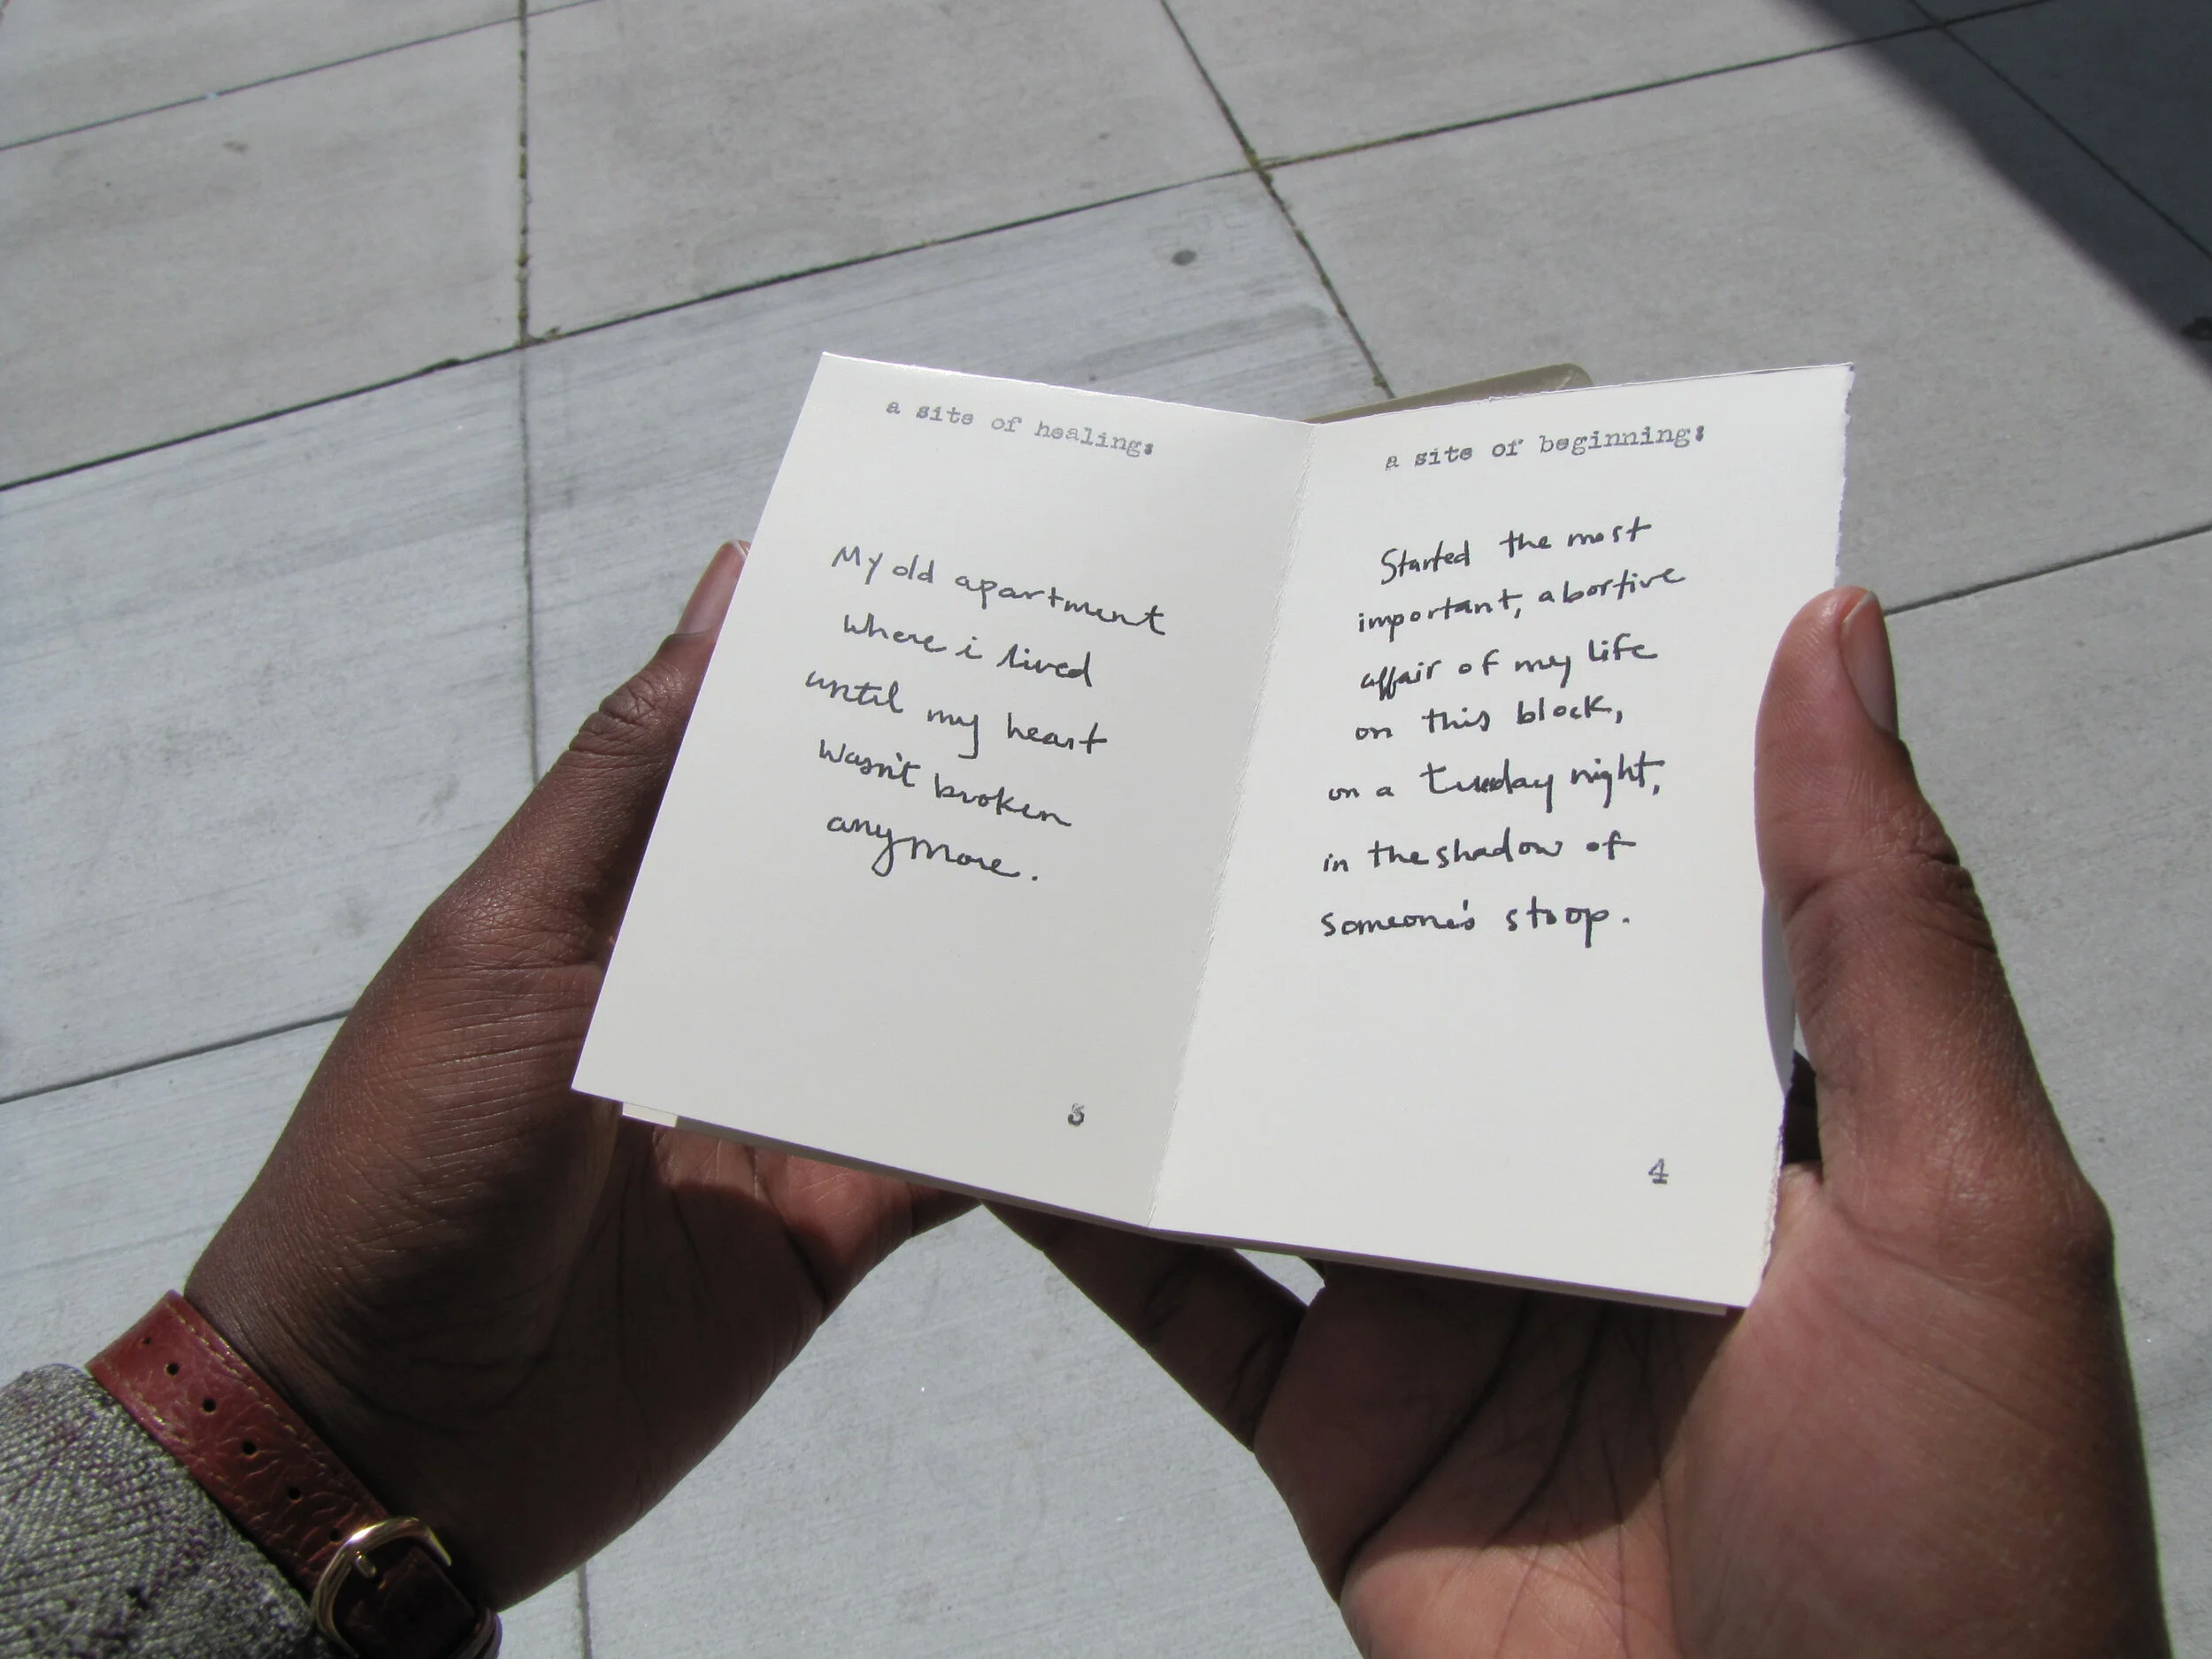 a site of healing:
My old apartment
where i lived
until my heart
wasn't broken
anymore.
3
a site of beginning:
Started the most
important, abortive
affair of my life
on this block,
on a tuesday night,
in the shadow of
someone's stoop.
4